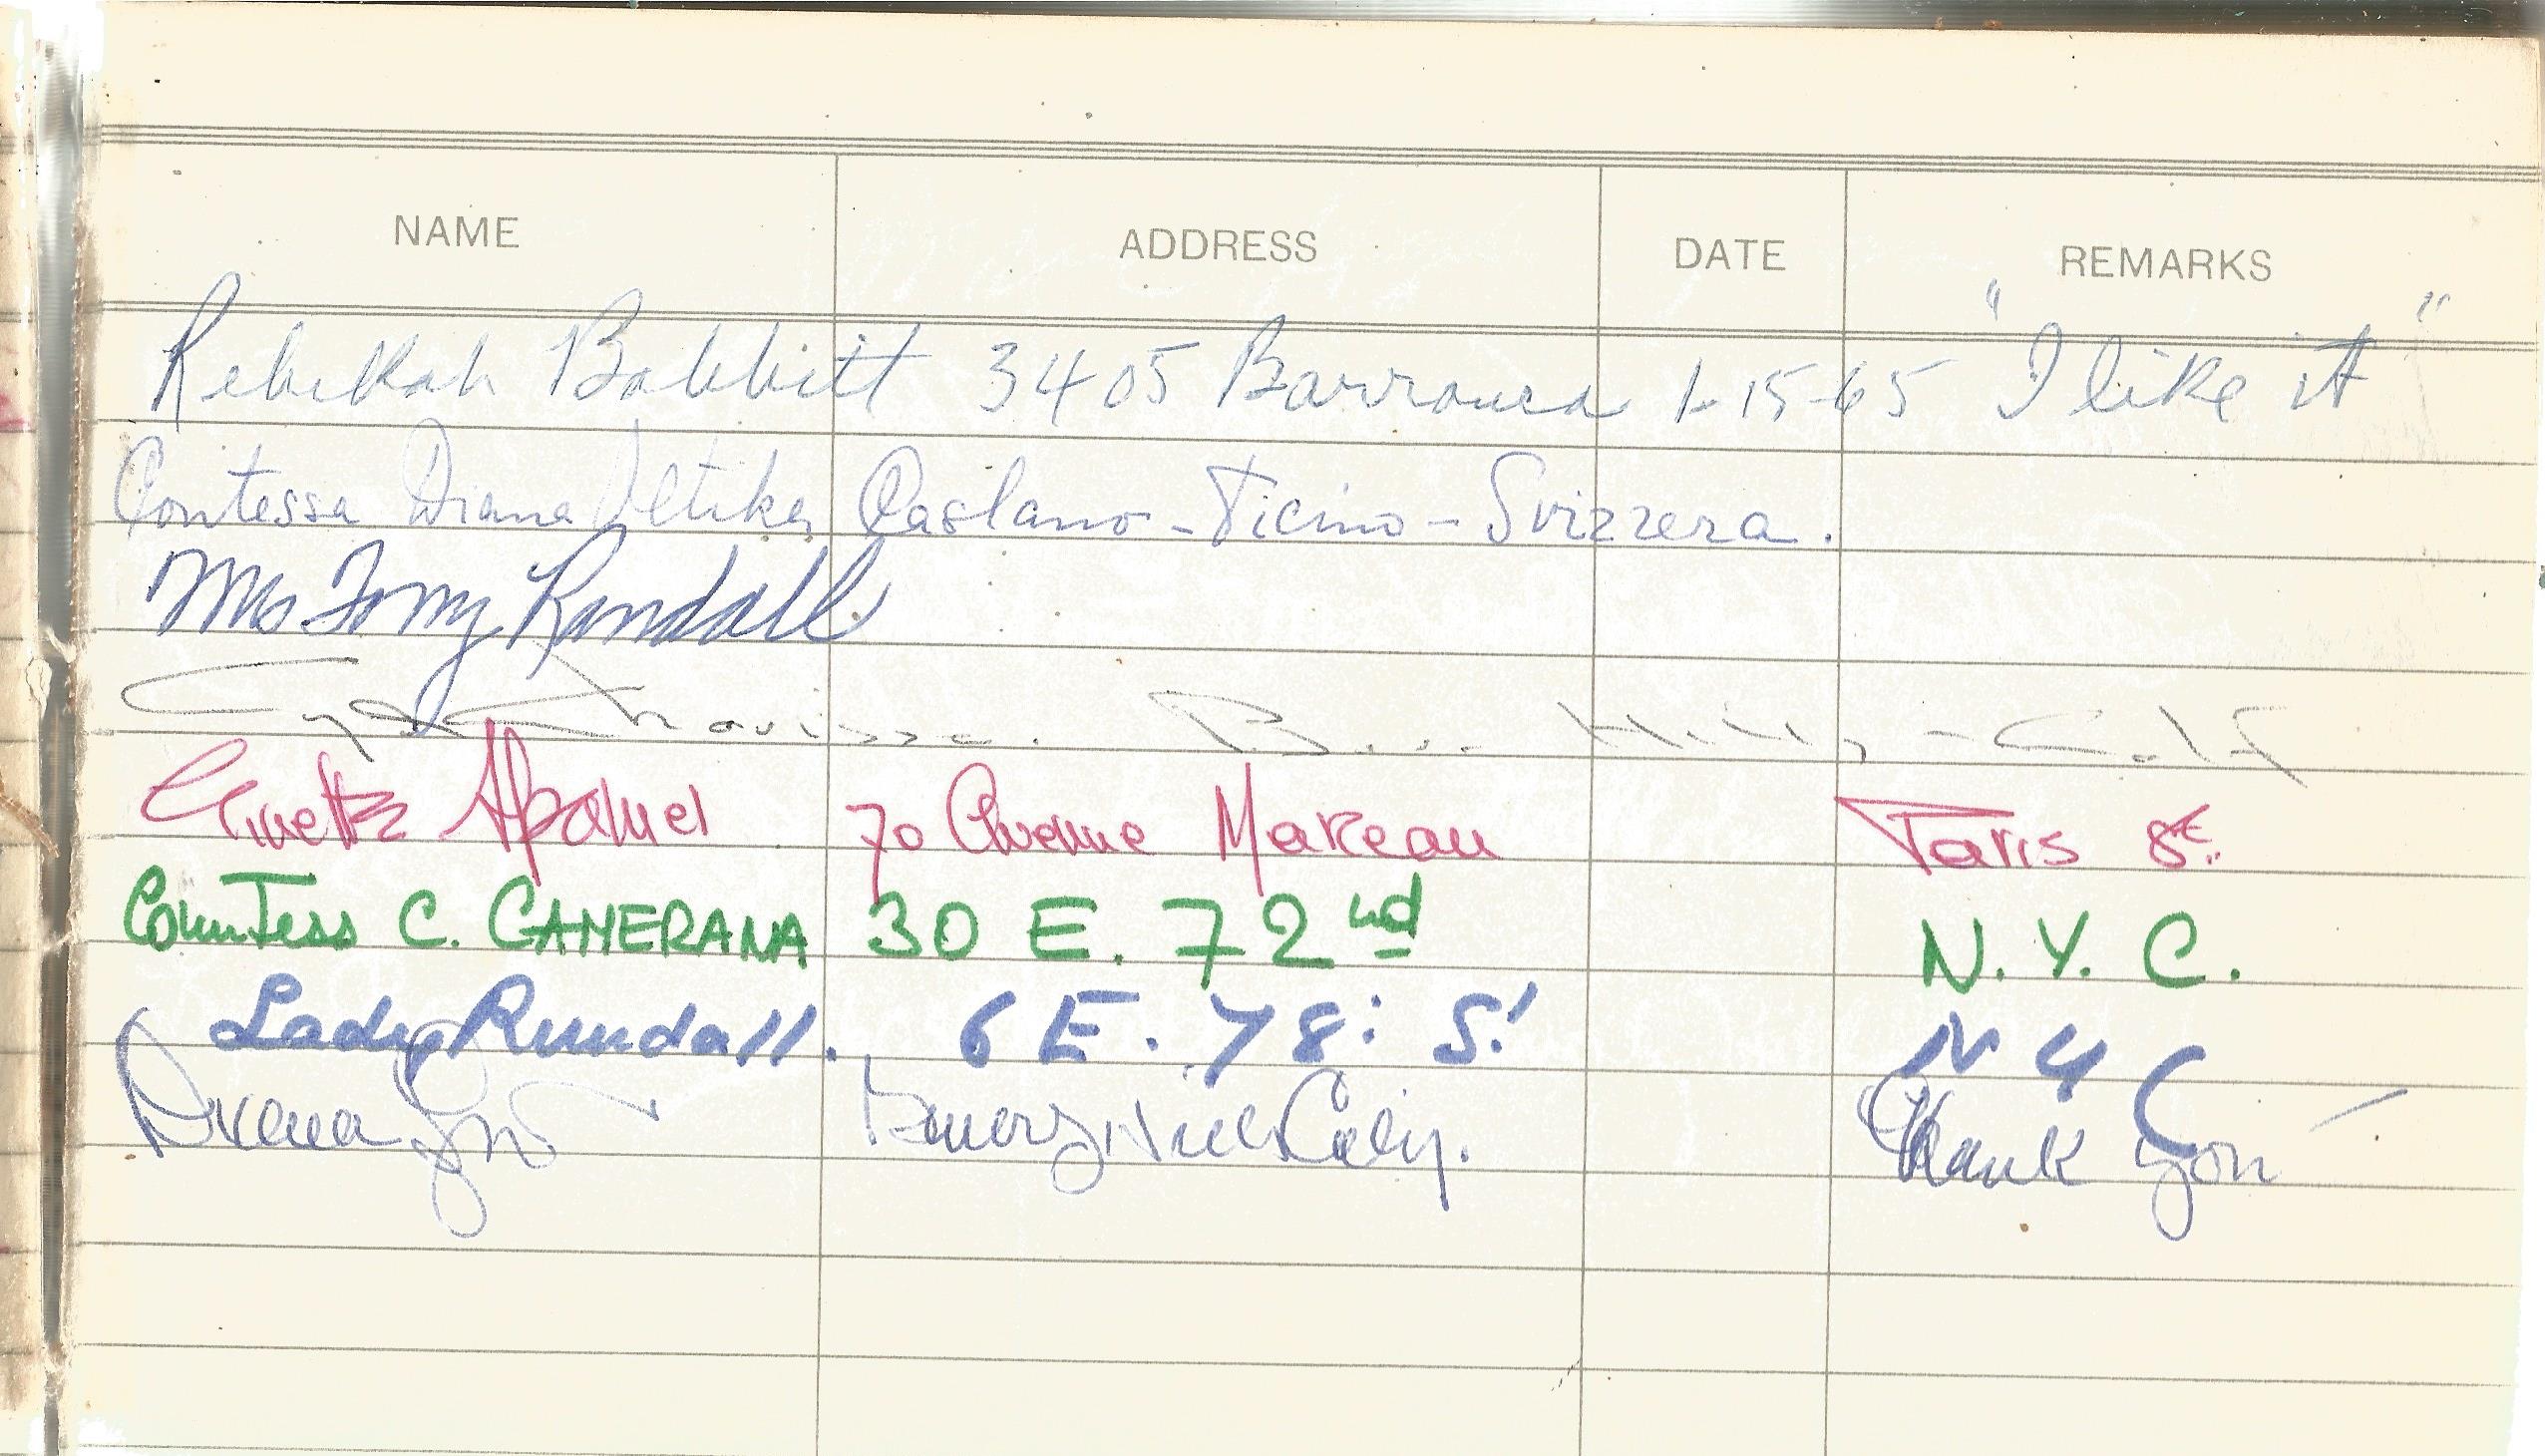 NAME ADDRESS DATE REMARKS
Rebekah Babbitt 3405 Barranca 1-15-65 "I like it"
Contessa Diana Caslano - Ticino - Svizzera.
Mrs Tony Randall
Cyd Charisse. Bev. Hills, - Calif
Ginette Spanier 70 Avenue Marceau Paris 8e.
Countess C. CAMERANA 30 E. 72nd N.Y.C.
Lady Rundall. 6 E. 78: St N Y C
Beverly Hills Thank you